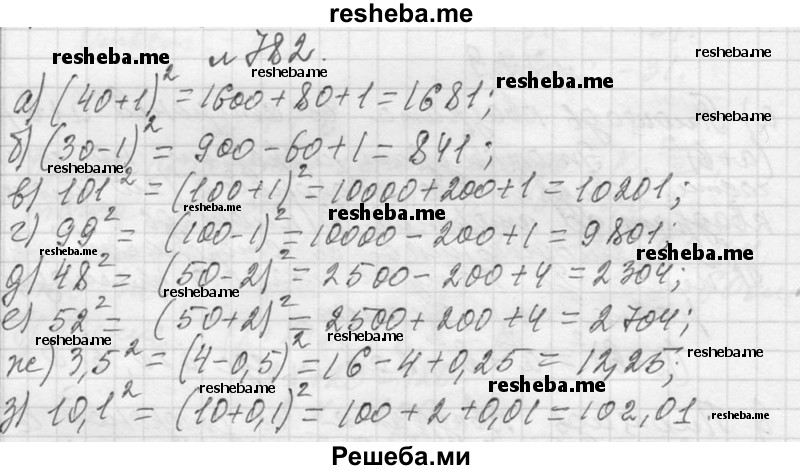 resheba.me
№ 782.
resheba.me resheba.me resheba.me
а) (40+1)² = 1600+80+1 = 1681;
resheba.me resheba.me
б) (30-1)² = 900-60+1 = 841;
resheba.me resheba.me
в) 101² = (100+1)² = 10000+200+1 = 10201;
resheba.me resheba.me resheba.me
г) 99² = (100-1)² = 10000-200+1 = 9801;
resheba.me resheba.me
д) 48² = (50-2)² = 2500-200+4 = 2304;
resheba.me resheba.me
е) 52² = (50+2)² = 2500+200+4 = 2704;
resheba.me resheba.me resheba.me
ж) 3,5² = (4-0,5)² = 16-4+0,25 = 12,25;
resheba.me resheba.me resheba.me
з) 10,1² = (10+0,1)² = 100+2+0,01 = 102,01.
Решеба.ми